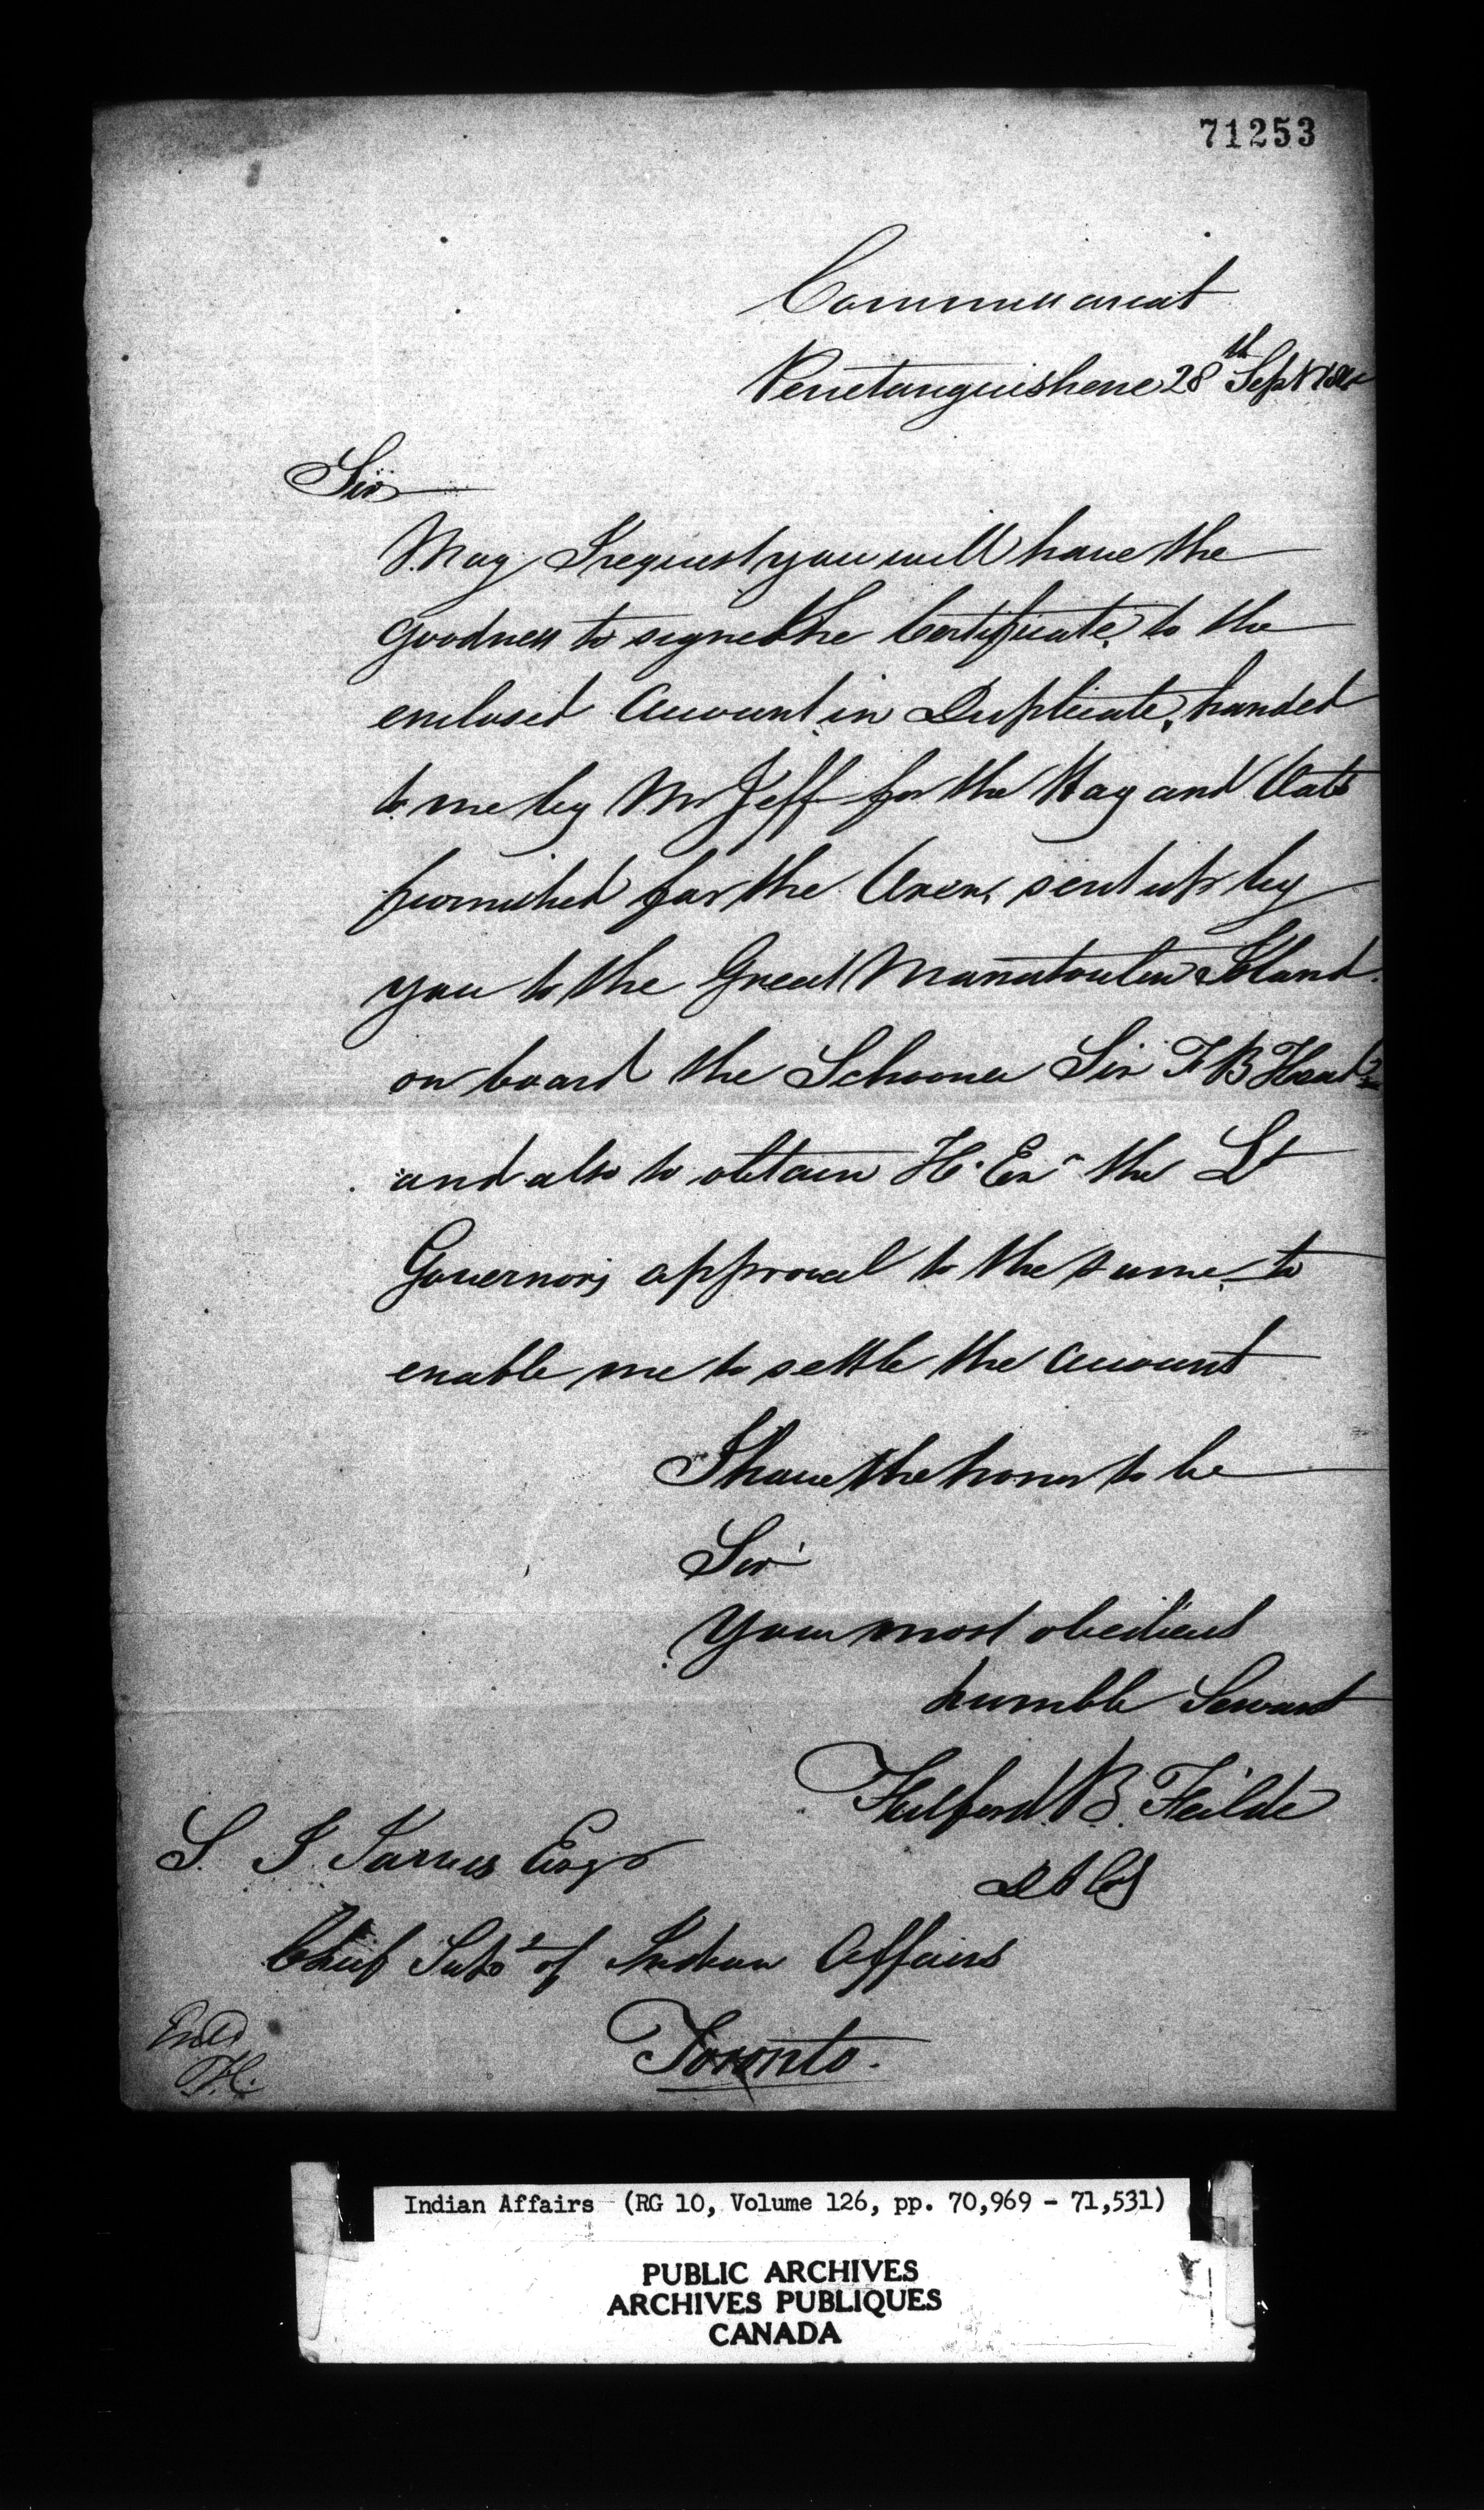 71253
Commissariat
Penetanguishene 28th Sept
Sir
May I request you will have the
goodness to signed the Certificate, to the
enclosed Account in Duplicate, handed
to me by Mr Jeff for the Hay and Oats
furnished for the Oxen, sent up by
you to the Great Manatoulin Island.
on board the Schooner Sir F B Head
and also to obtain H. Exy the Lt
Governors approval to the same to
enable me to settle the Account
I have the honor to be
Sir
Your most obedient
humble Servant
Fulford B. Feilde
DACG
S. J. Jarvis Esqr
Chief Supt of Indian Affairs
Toronto.
Indian Affairs (RG 10, Volume 126, pp. 70,969 - 71,531)
PUBLIC ARCHIVES
ARCHIVES PUBLIQUES
CANADA